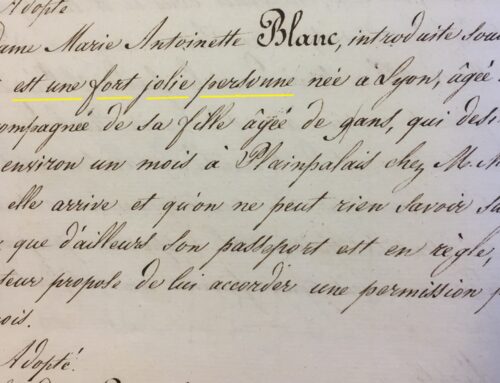 Adopté
ame Marie Antoinette Blanc, introduite sous
est une fort jolie personne née à Lyon, âgée
ompagnée de sa fille âgée de 9 ans, qui desi
environ un mois à Plainpalais chez M. M
elle arrive et qu'on ne peut rien savoir su
que d'ailleurs son passeport est en règle,
teur propose de lui accorder une permission p
ois.
Adopté.